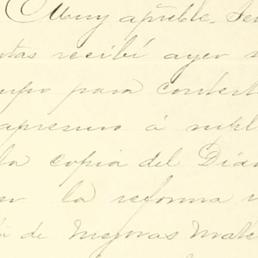 Muy apreble. Se
recibí ayer
para contest
apresuro á supl
la copia del Diar
la reforma
de Mejoras Mate